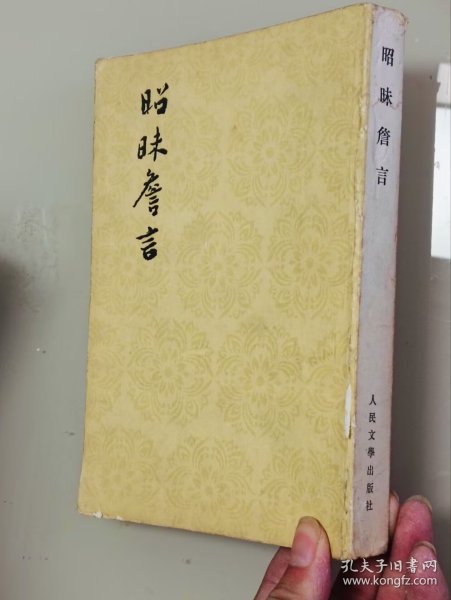 昭昧詹言
昭昧詹言
人民文學出版社
孔夫子旧书网
www.kongfz.com